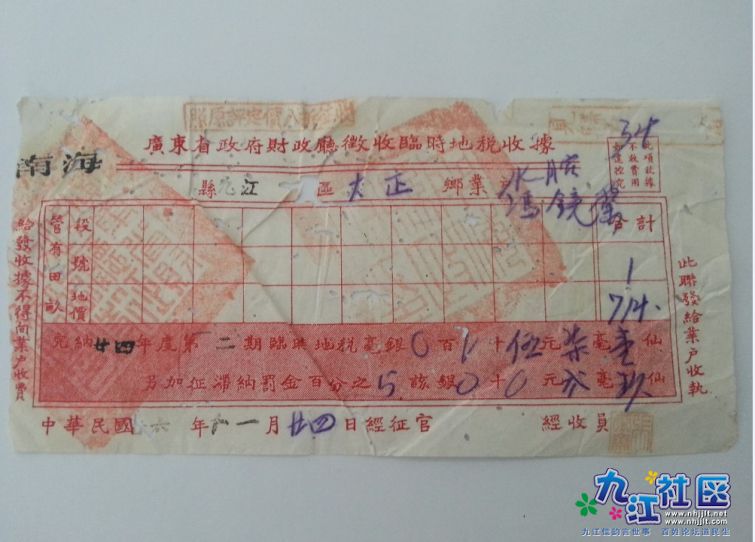 廣東省政府財政廳徵收臨時地稅收據
南海
縣九江 區大正 鄉業
馮鏡
34
此項收據
不收費用
合計
管有田畝
段號
地價
1
714.
完納廿四年度第二期臨時地稅毫銀0百1十伍元柒毫壹仙
另加征滯納罰金百分之5該銀0十0元弍毫玖仙
中華民國 六年十一月廿四日經征官 經收員
給發收據不得向業戶收費
此聯發給業戶收執
九江社区
www.nhjjlt.net
www.nhjjlt.com
九江儒韵言世事 百姓论坛道民生